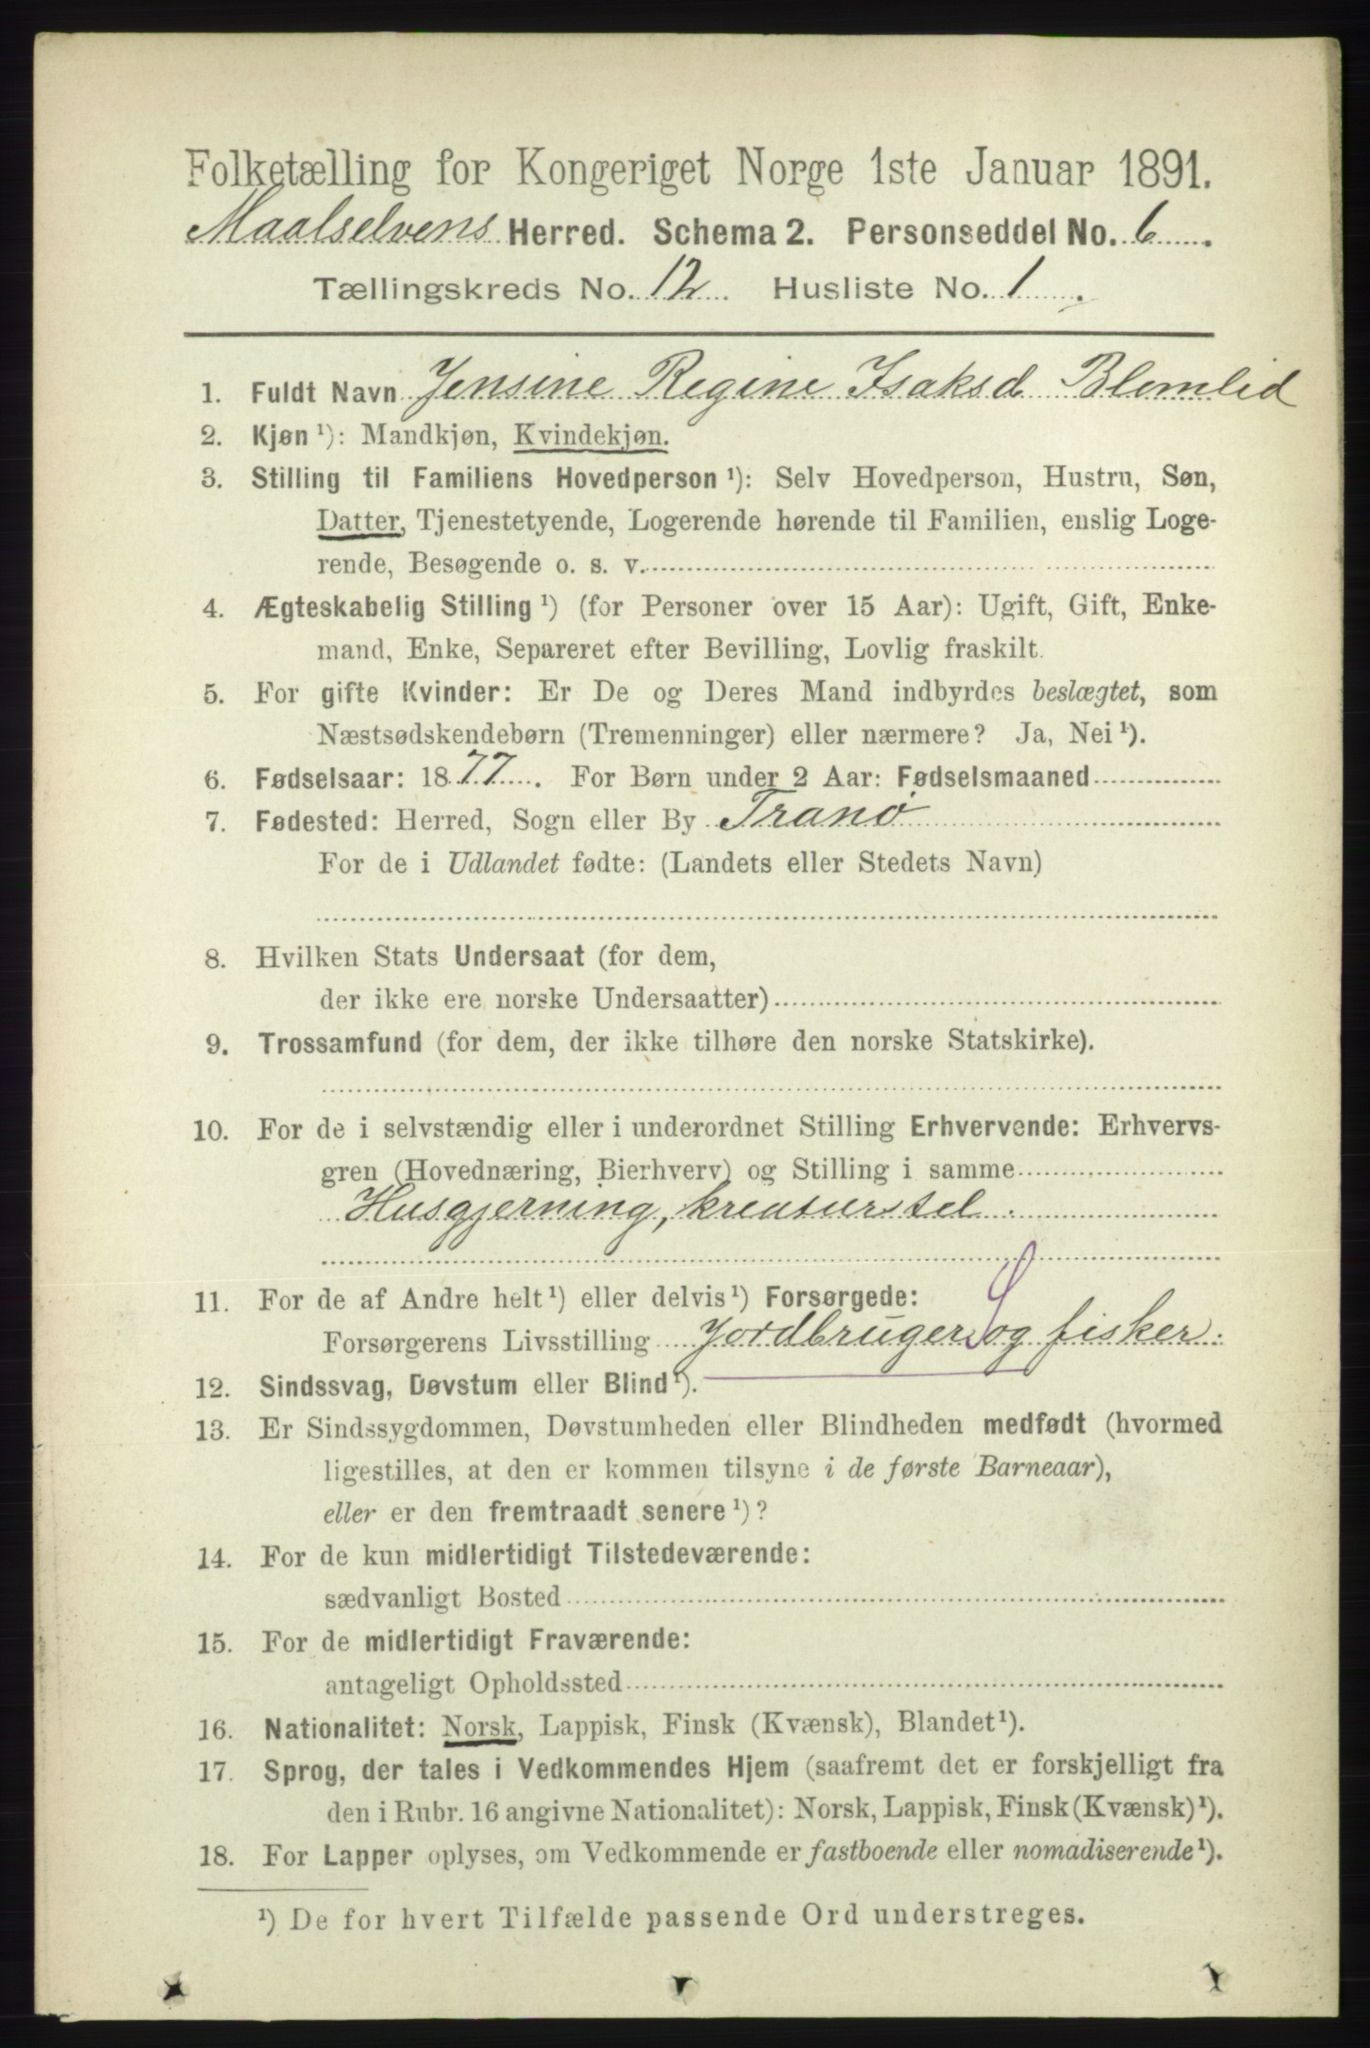 Folketælling for Kongeriget Norge 1ste Januar 1891.
Maalselvens Herred. Schema 2. Personseddel No. 6
Tællingskreds No. 12 Husliste No. 1
1. Fuldt Navn Jensine Regine Isaksd Blomlid
2. Kjøn ¹): Mandkjøn, Kvindekjøn.
3. Stilling til Familiens Hovedperson ¹): Selv Hovedperson, Hustru, Søn,
Datter, Tjenestetyende, Logerende hørende til Familien, enslig Loge-
rende, Besøgende o. s. v.
4. Ægteskabelig Stilling ¹) (for Personer over 15 Aar): Ugift, Gift, Enke-
mand, Enke, Separeret efter Bevilling, Lovlig fraskilt.
5. For gifte Kvinder: Er De og Deres Mand indbyrdes beslægtet, som
Næstsødskendebørn (Tremenninger) eller nærmere? Ja, Nei ¹).
6. Fødselsaar: 1877. For Børn under 2 Aar: Fødselsmaaned
7. Fødested: Herred, Sogn eller By Tranø
For de i Udlandet fødte: (Landets eller Stedets Navn)
8. Hvilken Stats Undersaat (for dem,
der ikke ere norske Undersaatter)
9. Trossamfund (for dem, der ikke tilhøre den norske Statskirke).
10. For de i selvstændig eller i underordnet Stilling Erhvervende: Erhvervs-
gren (Hovednæring, Bierhverv) og Stilling i samme
Husgjerning, kreaturstel.
11. For de af Andre helt ¹) eller delvis ¹) Forsørgede:
Forsørgerens Livsstilling Jordbruger og fisker.
12. Sindssvag, Døvstum eller Blind ¹).
13. Er Sindssygdommen, Døvstumheden eller Blindheden medfødt (hvormed
ligestilles, at den er kommen tilsyne i de første Barneaar),
eller er den fremtraadt senere ¹)?
14. For de kun midlertidigt Tilstedeværende:
sædvanligt Bosted
15. For de midlertidigt Fraværende:
antageligt Opholdssted
16. Nationalitet: Norsk, Lappisk, Finsk (Kvænsk), Blandet ¹).
17. Sprog, der tales i Vedkommendes Hjem (saafremt det er forskjelligt fra
den i Rubr. 16 angivne Nationalitet): Norsk, Lappisk, Finsk (Kvænsk) ¹).
18. For Lapper oplyses, om Vedkommende er fastboende eller nomadiserende ¹).
¹) De for hvert Tilfælde passende Ord understreges.